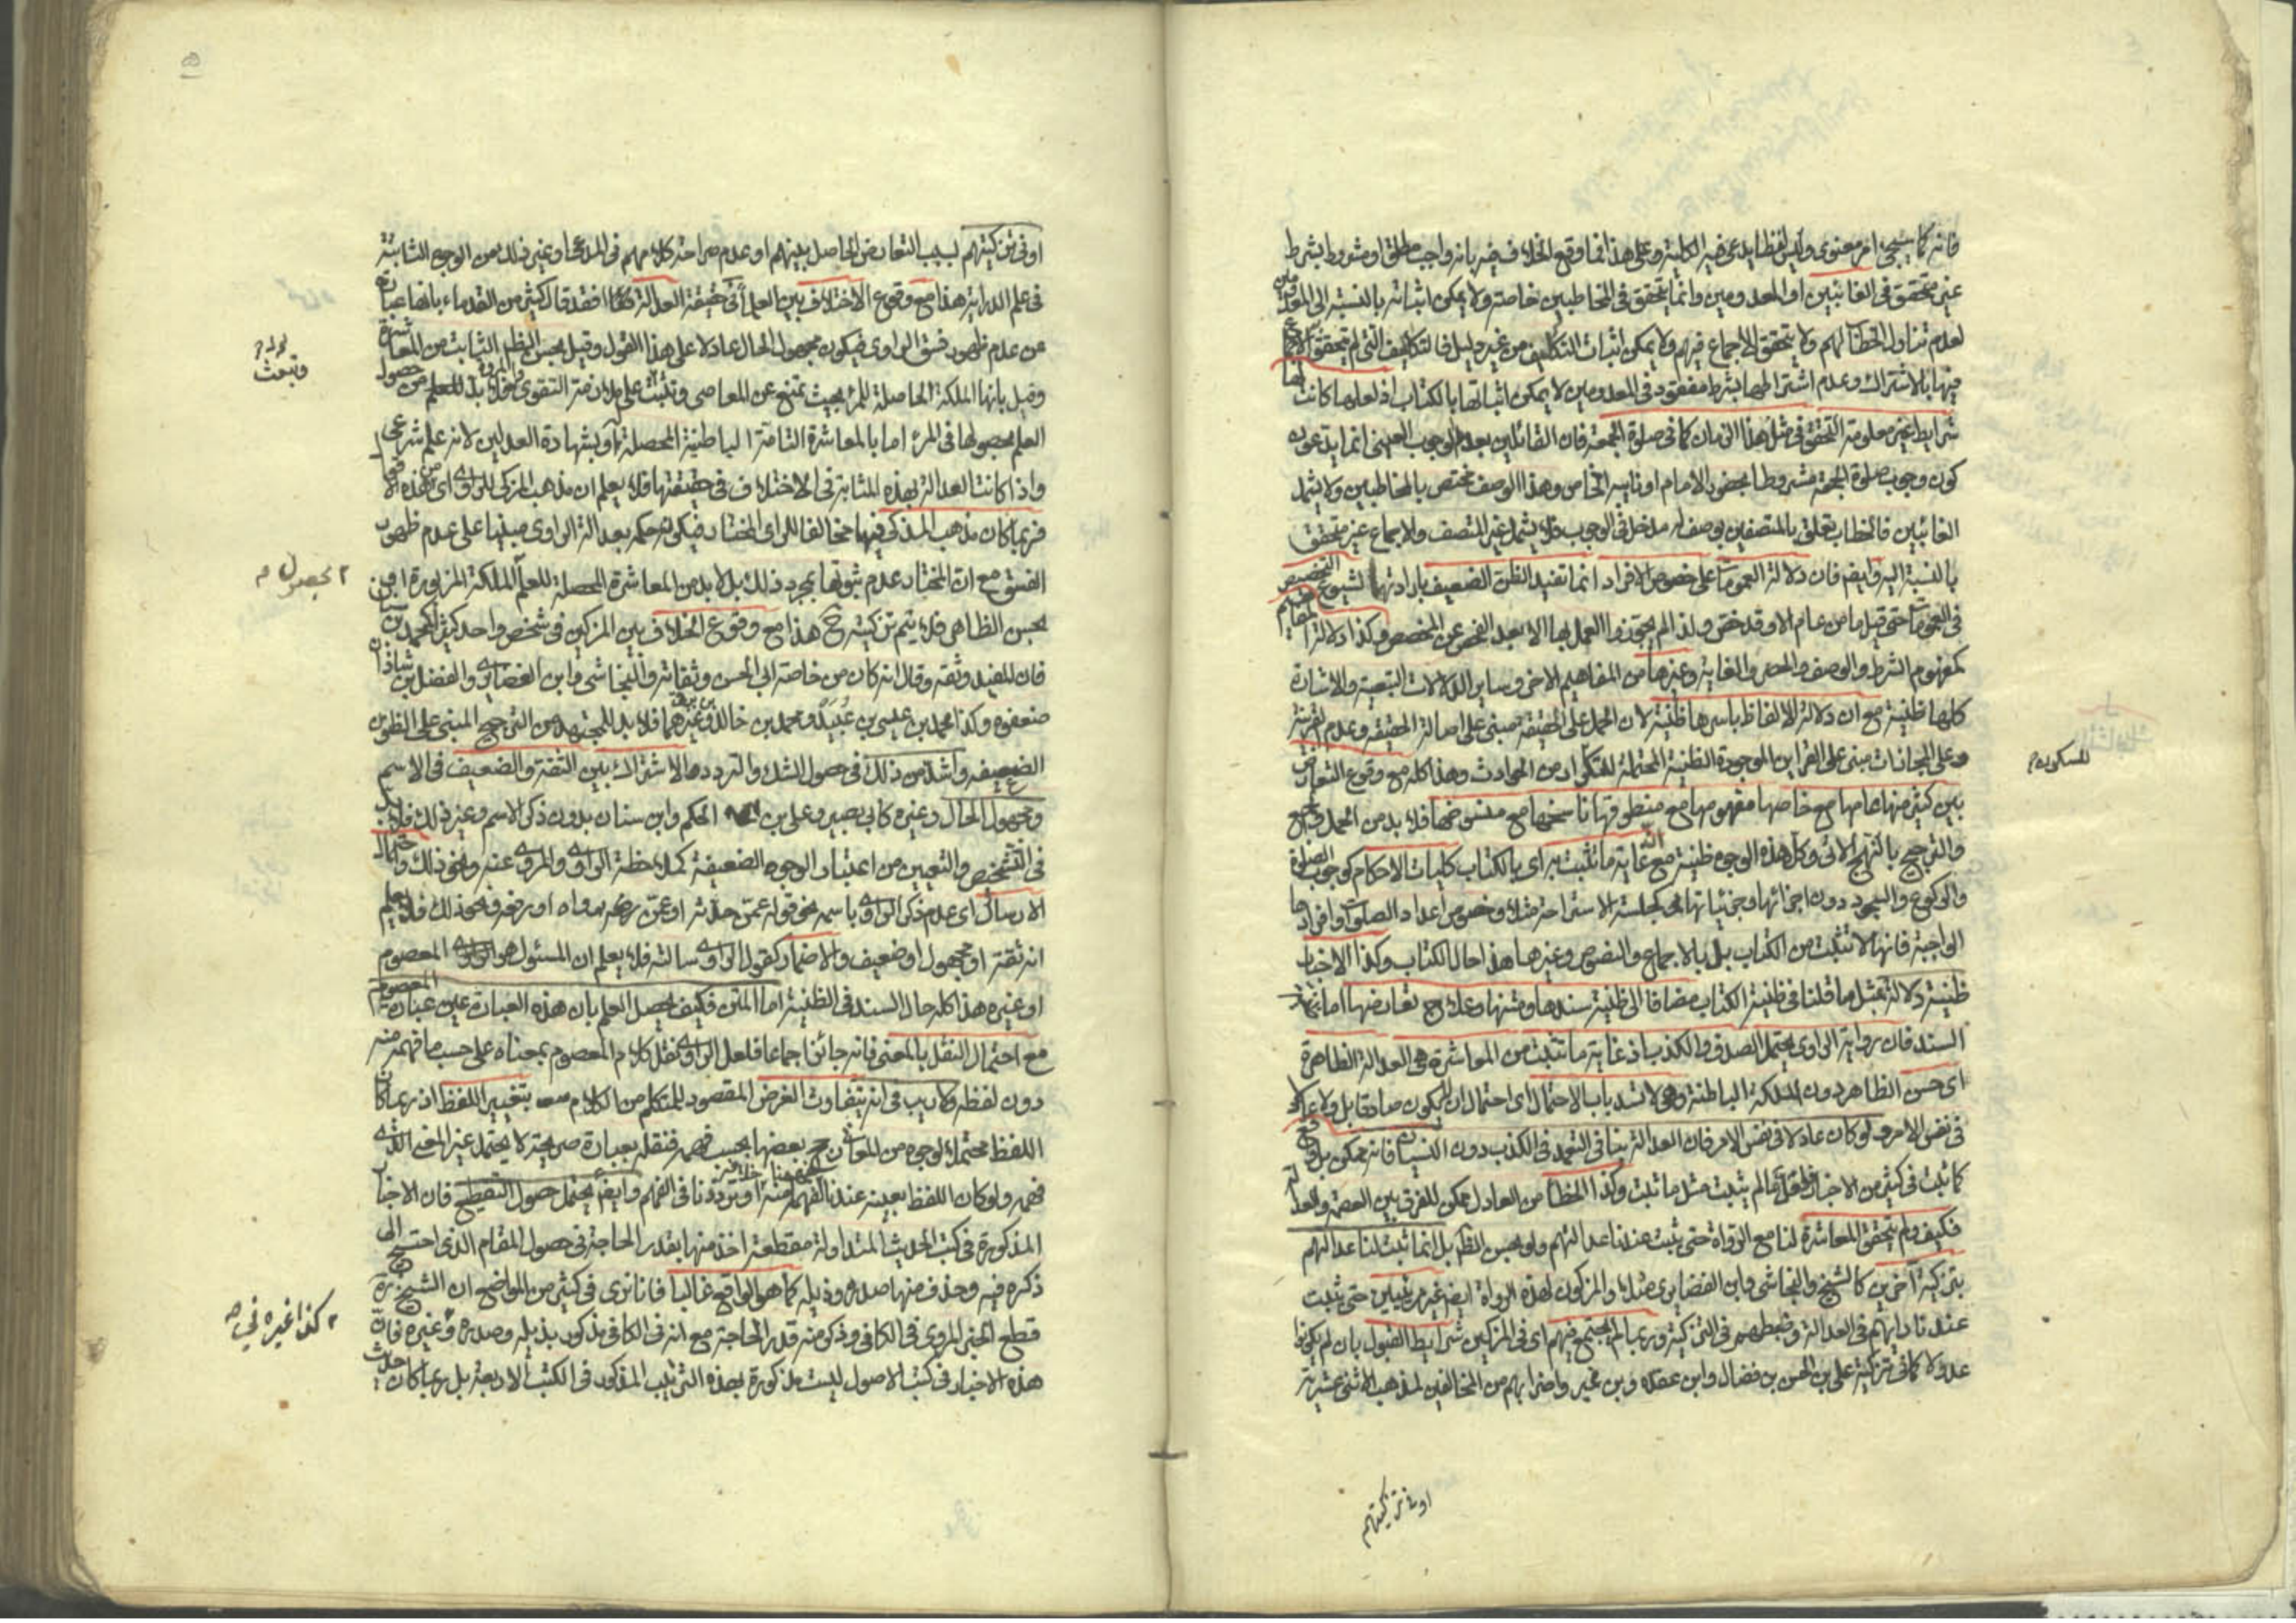 فانه كما سيجىء امر معنوى وليس لفظا يدعى فيه الكلية وعلى هذا فما وقع الخلاف فيه بانه واجب مطلق او مشروط بشرط
غير متحقق فى الغائبين او المعدومين وانما يتحقق فى المخاطبين خاصة ولا يمكن اثباته بالنسبة الى المعدومين
لعدم تناول الخطاب لهم ولا يتحقق الاجماع فيهم ولا يمكن اثبات التكليف من غير دليل فالتكاليف التى لم يتحقق الاجماع
فيها بالاشتراك وعدم اشتراطها بشرط مفقود فى المعدومين لا يمكن اثباتها بالكتاب اذ لعلها كانت لها
شرايط غير معلومة التحقق فى مثل هذا الزمان كما فى صلوة الجمعة فان القائلين بعدم الوجوب العينى انما يدعون
كون وجوب صلوة الجمعة مشروطا بحضور الامام او نايبه الخاص وهذا الوصف مختص بالمخاطبين ولا يشمل
الغائبين فالخطاب تعلق بالمتصفين بوصف له مدخل فى الوجوب فلا يشمل غير المتصف والاجماع غير متحقق
بالنسبة اليه وايضا فان دلالة العمومات على خصوص الافراد انما تفيد الظن الضعيف بارادتها لشيوع التخصيص
فى العمومات حتى قيل ما من عام الا وقد خص ولذا لم يجوزوا العمل بها الا بعد الفحص عن المخصص وكذا دلالة المفاهيم
كمفهوم الشرط والوصف والحصر والغاية وغيرها من المفاهيم الاخر وساير الدلالات التبعية والاشارة
كلها ظنية مع ان دلالة الالفاظ باسرها ظنية لان الحمل على الحقيقة مبنى على اصالة الحقيقة وعدم القرينة
وعلى المجازات مبنى على القراين الموجودة الظنية المحتملة للتكرار من الحوادث وهذا كله مع وقوع التعارض
للسكون م
بين كثير منها عامها مع خاصها مفهومها مع منطوقها ناسخها مع منسوخها فلا بد من الحمل والجمع
والترجيح بالنهج الاتى وكل هذه الوجوه ظنية مع انه غاية ما تثبت به اى بالكتاب كليات الاحكام كوجوب الصلوة
والركوع والسجود دون اجزائها وجزئياتها كجلسة الاستراحة مثلا وخصوص اعداد الصلوات وافرادها
الواجبة فانها لا تثبت من الكتاب بل بالاجماع والنصوص وغيرها هذا حال الكتاب وكذا الاخبار
ظنية دلالة بمثل ما قلنا فى ظنية الكتاب مضافا الى ظنية سندها ومتنها وعلاج تعارضها اما
السند فان رواية الراوى يحتمل الصدق والكذب اذ غاية ما تثبت من المعاشرة هى العدالة الظاهرة
اى حسن الظاهر دون الملكة الباطنة وهى لا تسد باب الاحتمال اى احتمال ان لا يكون صادقا بل ولا عادلا
فى نفس الامر ولو كان عادلا فى نفس الامر فان العدالة ينافى التعمد فى الكذب دون النسيان فانه ممكن بل واقع
كما ثبت فى كثير من الاخبار فلعل ما لم يثبت مثل ما ثبت وكذا الخطأ من العادل ممكن للفرق بين العصمة والعدالة
فكيف ولم يتحقق المعاشرة لنا مع الرواة حتى يثبت عندنا عدالتهم ولو بحسن الظاهر بل انما ثبت لنا عدالتهم
بتزكية آخرين كالشيخ والنجاشى وابن الغضايرى مثلا والمزكون لهذه الرواة ايضا غير مرئيين حتى يثبت
عندنا رأيهم فى العدالة وضبطهم فى التزكية وربما لم يجتمع فيهم اى فى المزكين شرايط القبول بان لم يكونوا
عدولا كما فى تزكية على بن الحسن بن فضال وابن عقده وبن نمير واضرابهم من المخالفين لمذهب الاثنى عشرية
او فى تزكيتهم
او فى تزكيتهم لسبب التعارض الحاصل بينهم او عدم صراحة كلامهم فى المدعا وغير ذلك من الوجوه الثابتة
فى علم الدراية هذا مع وقوع الاختلاف بين العلماء فى حقيقة العدالة فقد قال كثير من القدماء بانها عبارة
عن عدم ظهور فسق الراوى فيكون مجهول الحال عادلا على هذا القول وقيل بحسن الظاهر الثابت من المعاشرة
وقيل بانها الملكة الحاصلة للمرء بحيث تمنع عن المعاصى وتبعث على ملازمة التقوى والمروة فلا بد للعلم من حصول
وتبعث
العلم بحصولها فى المرء اما بالمعاشرة التامة الباطنية المحصلة او بشهادة العدلين لانه علم شرعى
واذا كانت العدالة بهذه المثابة فى الاختلاف فى حقيقتها فلا يعلم ان مذهب المزكى للراوى اى من هذه الاقوال
فربما كان مذهب المزكى فيها مخالفا للراى المختار فيكون حكمه بعدالة الراوى مبنيا على عدم ظهور
الفسق مع ان المختار عدم ثبوتها بمجرد ذلك بل لا بد من المعاشرة المحصلة للعلم الملكة المزبورة او من
بحصول م
بحسن الظاهر فلا يتم تزكيته ح هذا مع وقوع الخلاف بين المزكين فى شخص واحد كمحمد بن سنان
فان المفيد وثقه وقال انه كان من خاصة ابى الحسن وثقاته والنجاشى وابن الغضايرى والفضل بن شاذان
ضعفوه وكذا محمد بن عيسى بن عبيد ومحمد بن خالد البرقى وغيرهما فلا بد للمجتهد من الترجيح المبنى على الظنون
الضعيفه واشد من ذلك فى حصول الشك والتردد هو الاشتراك بين الثقة والضعيف فى الاسم
ومجهول الحال وغيره كابى بصير وعلى بن الحكم وابن سنان بدون ذكر الاسم وغير ذلك فلا بد
فى التشخيص والتعيين من اعتبار الوجوه الضعيفة كملاحظة الراوى والمروى عنه ونحو ذلك واحتمال
الارسال اى عدم ذكر الراوى باسمه نحو قوله عمن حدثه او عن رجل رواه او رفعه ونحو ذلك فلا يعلم
انه ثقة او مجهول او ضعيف والاضمار كقول الراوى سالته فلا يعلم ان المسئول هو المعصوم
او غيره هذا كله حال السند فى الظنية اما المتن فكيف يحصل العلم بان هذه العبارة عين عبارة المعصوم
مع احتمال النقل بالمعنى فانه جائز اجماعا فلعل الراوى نقل كلام المعصوم بمعناه على حسب ما فهمه منه
دون لفظه ولا ريب فى انه يتفاوت الغرض المقصود للمتكلم من الكلام بتغيير اللفظ اذ ربما كان
اللفظ محتملا لوجوه من المعانى رجح بعضها بحسب فهمه فنقله بعبارة صريحة لا يحتمل غير المعنى الذى
فهمه ولو كان اللفظ بعينه عندنا لفهمنا منه خلافه او ترددنا فى الفهم وايضا يحتمل حصول التقطيع فان الاخبار
المذكورة فى كتب الحديث المتداولة مقطعة اخذ منها بقدر الحاجة فى حصول المقام الذى احتيج الى
ذكره فيه وحذف منها صدره وذيله كما هو الواقع غالبا فانا نرى فى كثير من المواضع ان الشيخ ره
قطع الخبر المروى فى الكافى وذكر منه قدر الحاجة مع انه فى الكافى مذكور بذيله وصدره وغيره فان
كذا غيره
هذه الاخبار فى كتب الاصول ليست مذكورة بهذه الترتيب المذكور فى الكتب الاربعة بل ربما كان